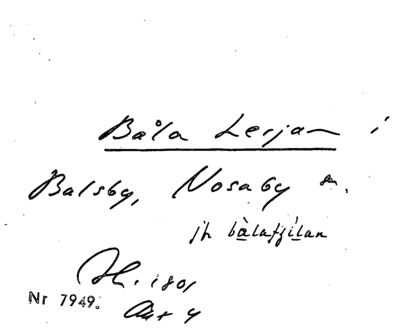 Båla Lerjan i
Balsby, Nosaby sn.
jh bàlafzílan
Sk. 1801
Nr 7949. Akt 4